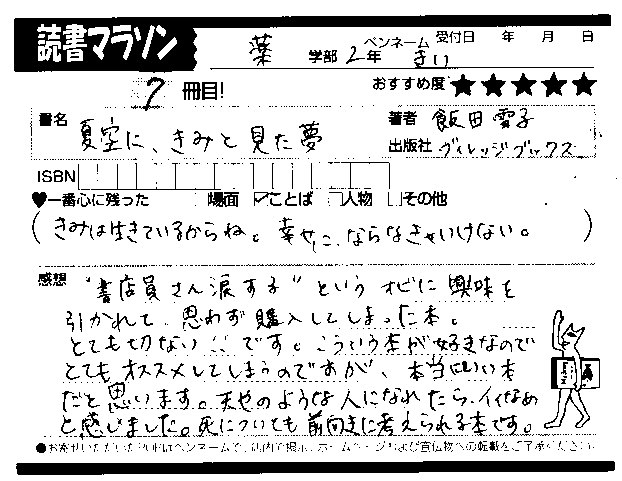 読書マラソン
薬 学部 2年 ペンネーム きい 受付日 年 月 日
7 冊目! おすすめ度 ★★★★★
書名 夏空に、きみと見た夢
著者 飯田雪子
出版社 ヴィレッジブックス
ISBN
♥一番心に残った □場面 ☑ことば □人物 □その他
(きみは生きているからね。幸せに、ならなきゃいけない。)
感想 "書店員さん涙する"というオビに興味を
引かれて、思わず購入してしまった本。
とても切ない!!です。こういう本が好きなので
とてもオススメしてしまうのですが、本当にいい本
だと思います。天也のような人になれたら、イイなぁ
と感じました。死についても前向きに考えられる本です。
●お寄せいただいたPOPはペンネームで、店内で掲示、ホームページおよび宣伝物への転載をご了承ください。